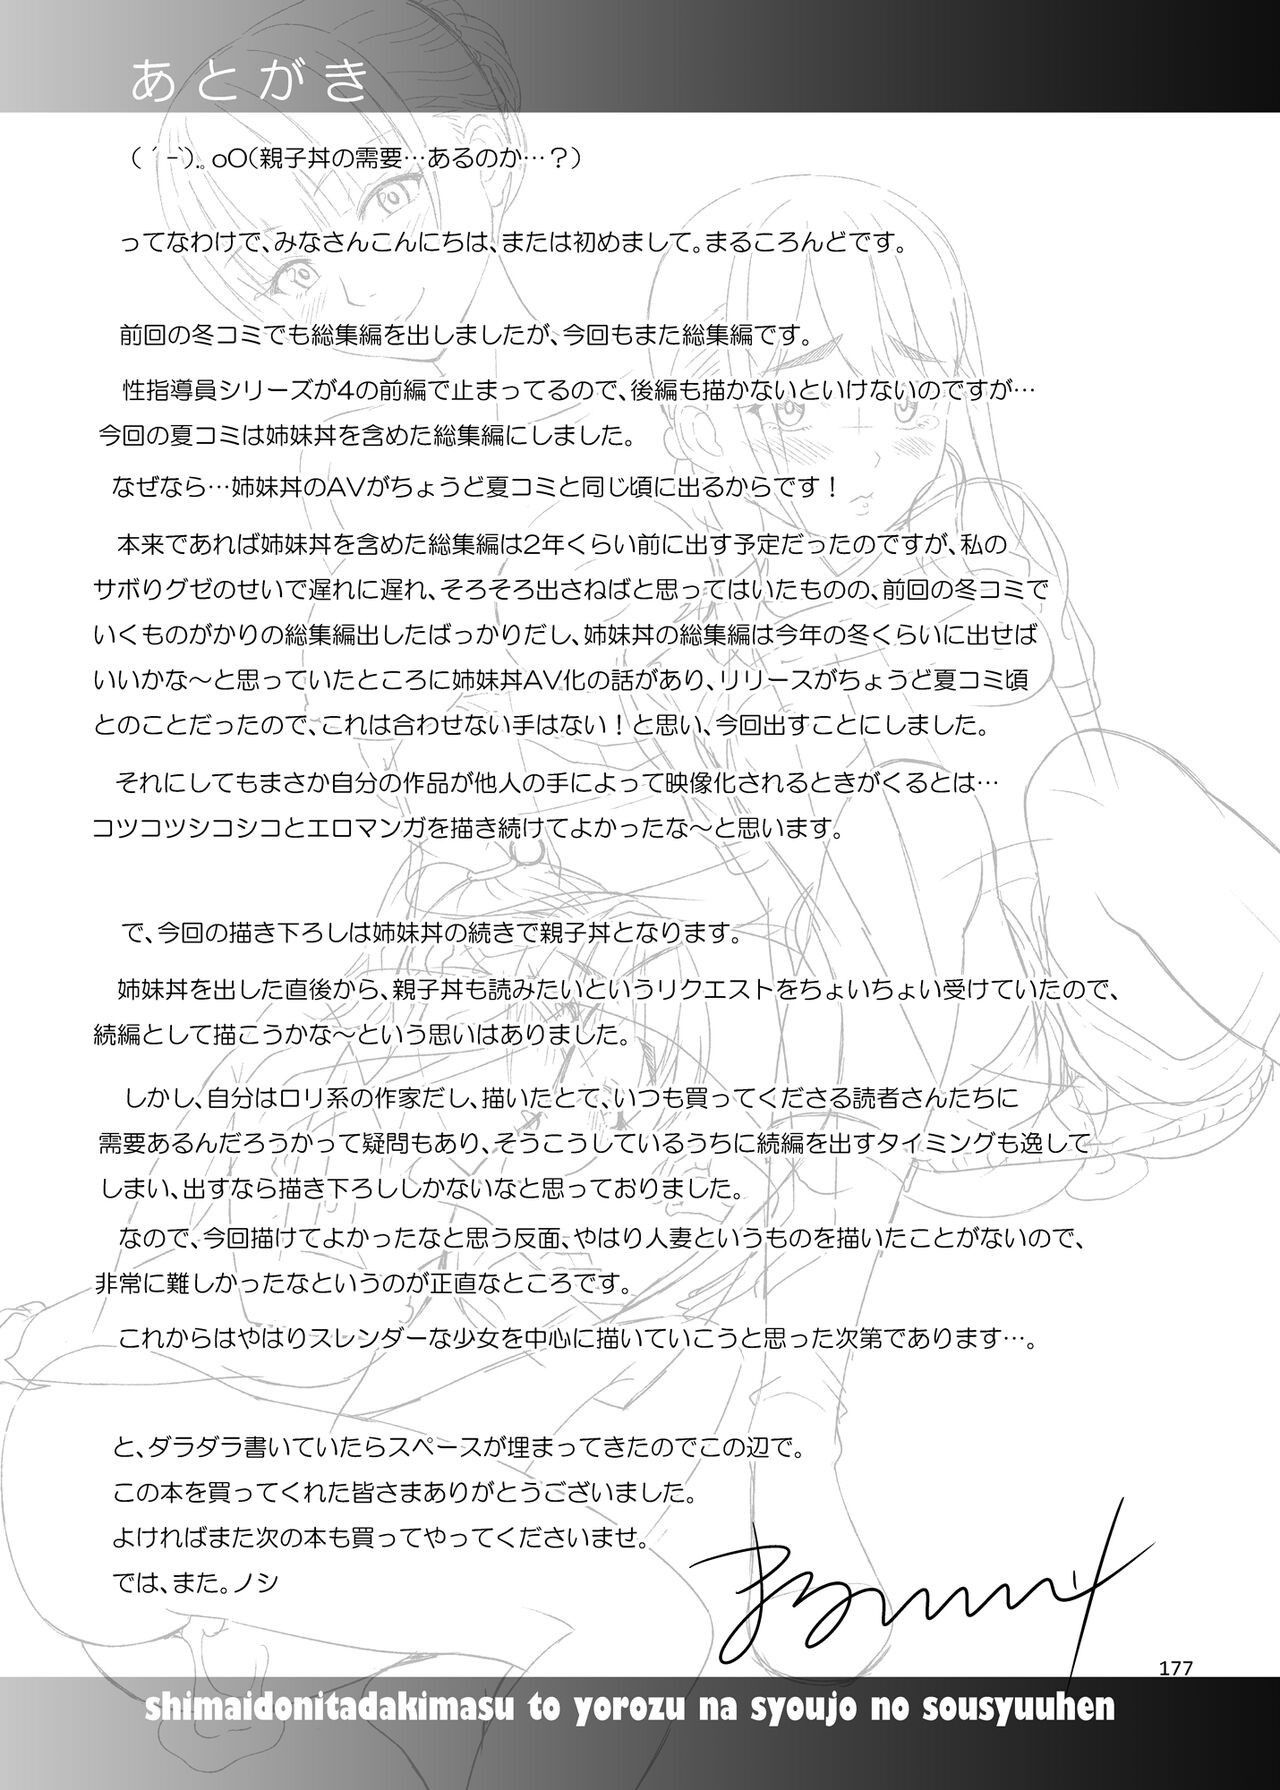 あとがき
( ´-`).。oO(親子丼の需要…あるのか…?)
ってなわけで、みなさんこんにちは、または初めまして。まるころんどです。
前回の冬コミでも総集編を出しましたが、今回もまた総集編です。
性指導員シリーズが4の前編で止まってるので、後編も描かないといけないのですが…
今回の夏コミは姉妹丼を含めた総集編にしました。
なぜなら…姉妹丼のAVがちょうど夏コミと同じ頃に出るからです!
本来であれば姉妹丼を含めた総集編は2年くらい前に出す予定だったのですが、私の
サボりグゼのせいで遅れに遅れ、そろそろ出さねばと思ってはいたものの、前回の冬コミで
いくものがかりの総集編出したばっかりだし、姉妹丼の総集編は今年の冬くらいに出せば
いいかな～と思っていたところに姉妹丼AV化の話があり、リリースがちょうど夏コミ頃
とのことだったので、これは合わせない手はない!と思い、今回出すことにしました。
それにしてもまさか自分の作品が他人の手によって映像化されるときがくるとは…
コツコツシコシコとエロマンガを描き続けてよかったな～と思います。
で、今回の描き下ろしは姉妹丼の続きで親子丼となります。
姉妹丼を出した直後から、親子丼も読みたいというリクエストをちょいちょい受けていたので、
続編として描こうかな～という思いはありました。
しかし、自分はロリ系の作家だし、描いたとて、いつも買ってくださる読者さんたちに
需要あるんだろうかって疑問もあり、そうこうしているうちに続編を出すタイミングも逸して
しまい、出すなら描き下ろししかないなと思っておりました。
なので、今回描けてよかったなと思う反面、やはり人妻というものを描いたことがないので、
非常に難しかったなというのが正直なところです。
これからはやはりスレンダーな少女を中心に描いていこうと思った次第であります…。
と、ダラダラ書いていたらスペースが埋まってきたのでこの辺で。
この本を買ってくれた皆さまありがとうございました。
よければまた次の本も買ってやってくださいませ。
では、また。ノシ
177
shimaidonitadakimasu to yorozu na syoujo no sousyuuhen